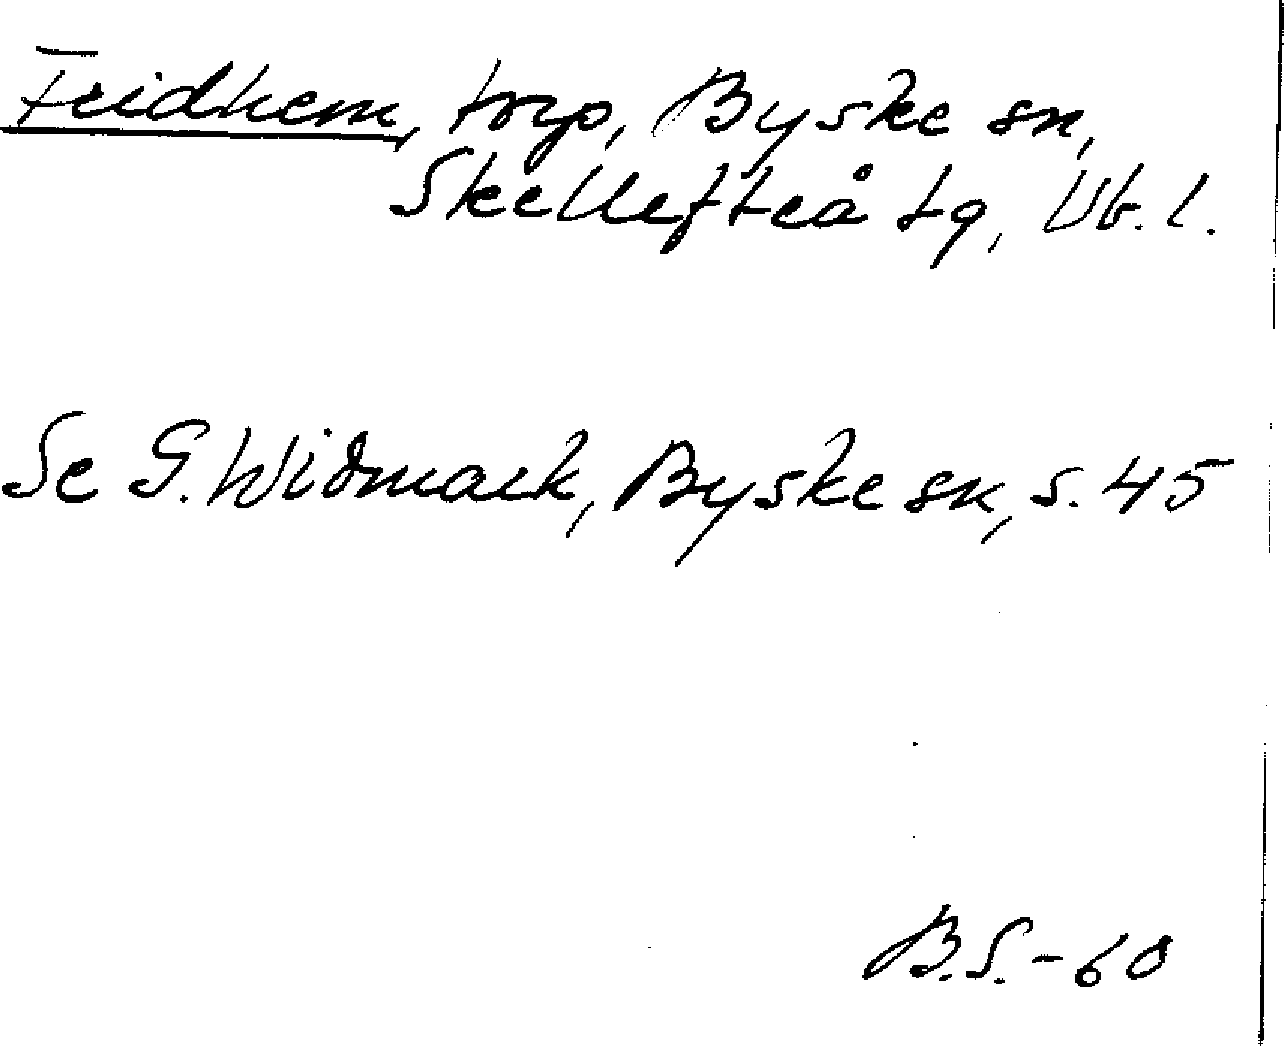 Fridhem, torp, Byske sn,
Skellefteå tg, Vb. l.
Se G. Widmark, Byske sn, s. 45
B.S. - 60